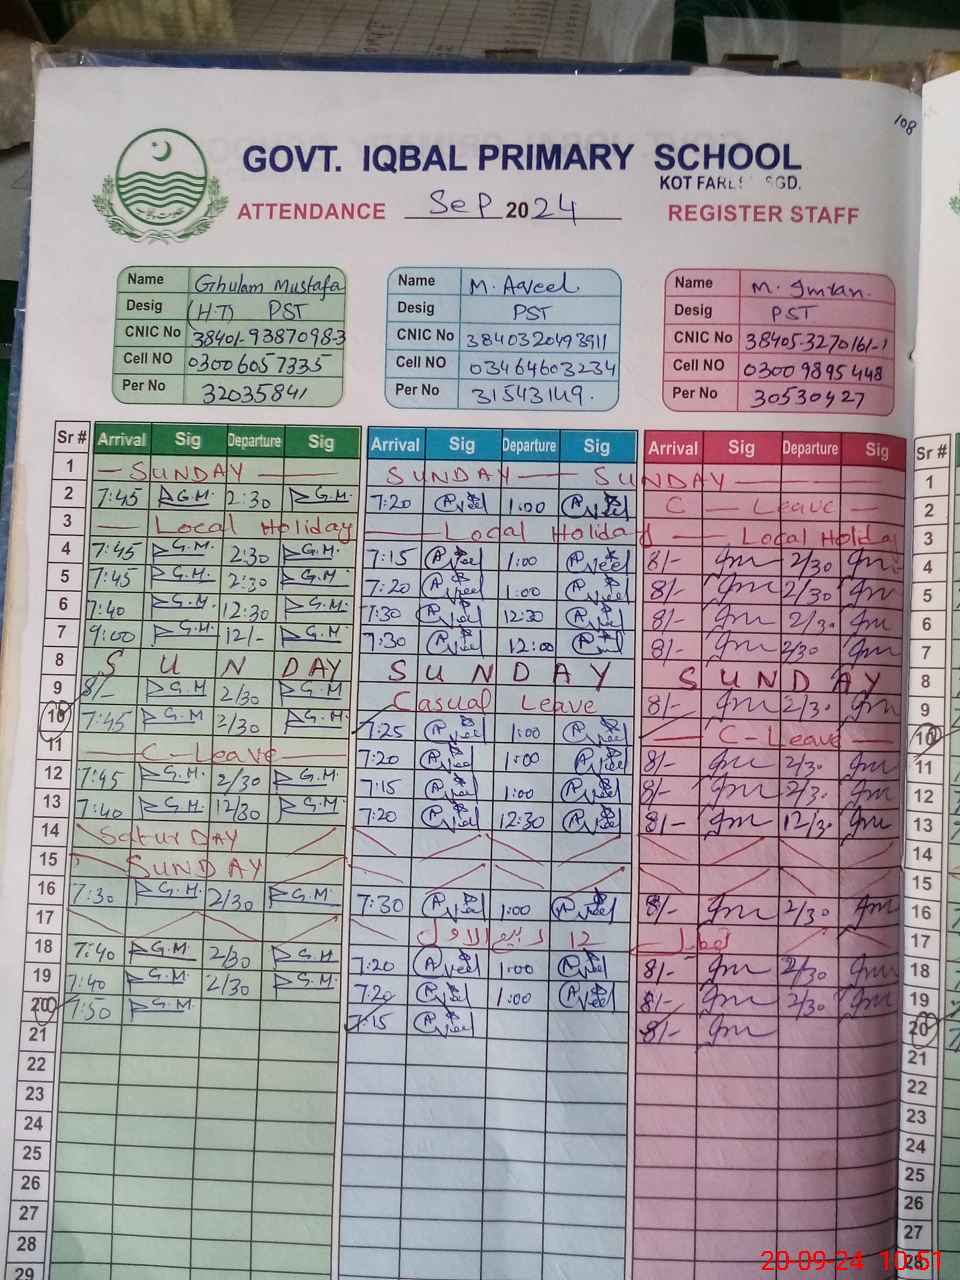 108
GOVT. IQBAL PRIMARY SCHOOL
KOT FAR SGD.
ATTENDANCE Sep 2024 REGISTER STAFF
Name Ghulam Mustafa Name M. Aqeel Name M. Imran.
Desig (H.T) PST Desig PST Desig PST
CNIC No 38401-9387098-3 CNIC No 3840320493911 CNIC No 38405-3270161-1
Cell NO 03006057335 Cell NO 03464603234 Cell NO 03009895448
Per No 32035841 Per No 31543149. Per No 30530427
Sr # Arrival Sig Departure Sig Arrival Sig Departure Sig Arrival Sig Departure Sig Sr #
1 SUNDAY SUNDAY SUNDAY 1
2 7:45 G.M. 2:30 G.M. 7:20 1:00 C - Leave 2
3 Local Holiday Local Holiday Local Holiday 3
4 7:45 G.M. 2:30 G.M. 7:15 1:00 8/- 2/30 4
5 7:45 G.M. 2:30 G.M. 7:20 1:00 8/- 2/30 5
6 7:40 G.M. 12:30 G.M. 7:30 12:30 8/- 2/30 6
7 9:00 G.M. 12/- G.M. 7:30 12:00 8/- 2/30 7
8 SUNDAY SUNDAY SUNDAY 8
9 8/- G.M 2/30 G.M Casual Leave 8/- 2/30 9
10 7:45 G.M 2/30 G.M. 7:25 1:00 C-Leave 10
11 C-Leave 7:20 1:00 8/- 2/30 11
12 7:45 G.M. 2/30 G.M. 7:15 1:00 8/- 2/30 12
13 7:40 G.M. 12/30 G.M. 7:20 12:30 8/- 12/30 13
14 SaturDAY 14
15 SUNDAY 15
16 7:30 G.M. 2/30 G.M. 7:30 1:00 8/- 2/30 16
17 12 ربیع الاول تعطیل 17
18 7:40 G.M 2/30 G.M 7:20 1:00 8/- 2/30 18
19 7:40 G.M. 2/30 G.M. 7:20 1:00 8/- 2/30 19
20 7:50 G.M. 7:15 8/- 20
21 21
22 22
23 23
24 24
25 25
26 26
27 27
28 28
29
20-09-24 10:51